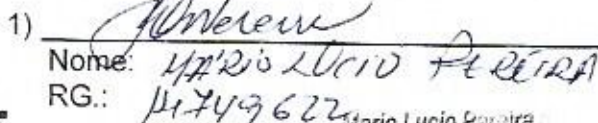 1)
Nome: MÁRIO LUCIO PEREIRA
RG.: 14749622
Mario Lucio Pereira